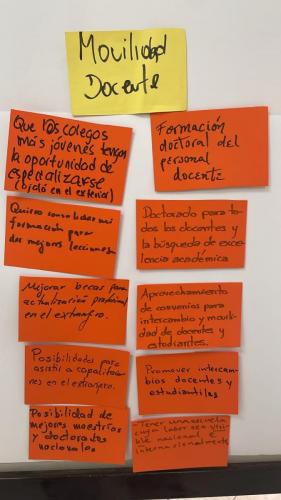 Movilidad
Docente
Que los colegas
más jóvenes tengan
la oportunidad de
especializarse
(ojalá en el exterior)
Formación
doctoral del
personal
docente
Quiero consolidar mi
formación para
dar mejores lecciones
Doctorado para to-
dos los docentes y
la búsqueda de exce-
lencia académica
Mejorar becas para
actualización profesional
en el extranjero.
Aprovechamiento
de convenios para
intercambio y movili-
dad de docentes y
estudiantes.
Posibilidades para
asistir a capacitacio-
nes en el extranjero.
Promover intercam-
bios docentes y
estudiantiles
Posibilidad de
mejores maestrías
y doctorados
nacionales
-Tener una escuela
cuya labor sea visi-
ble nacional e
internacionalmente